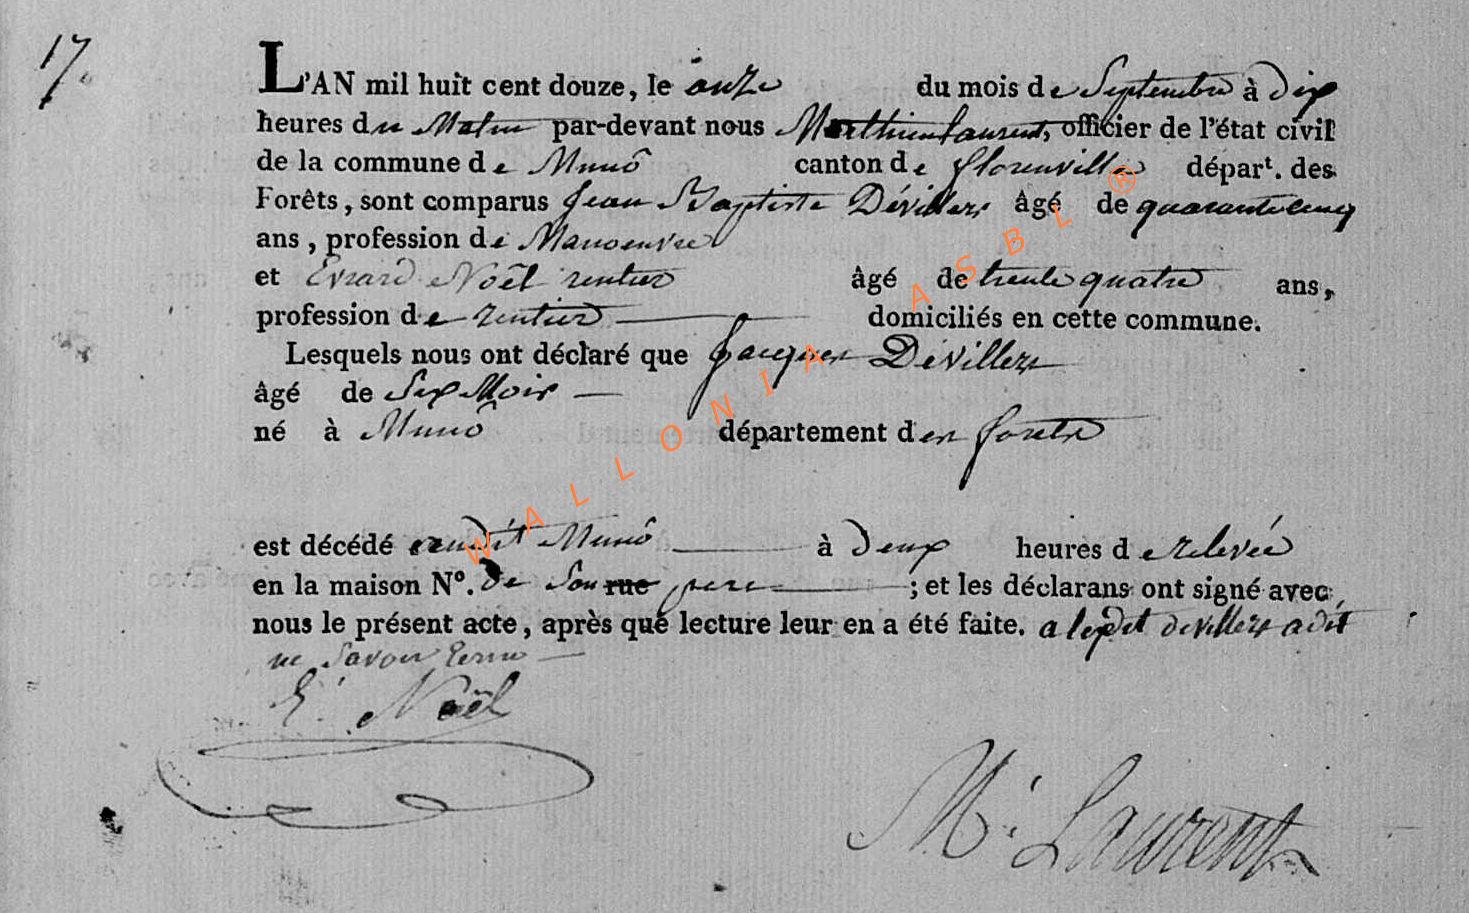 17.
L'AN mil huit cent douze, le onze du mois de Septembre à dix
heures du Matin par-devant nous Matthieu Laurent, officier de l'état civil
de la commune de Munô canton de florenville départ. des
Forêts, sont comparus Jean Baptiste Dévillers âgé de quarante cinq
ans, profession de Manoeuvre
et Evrard Noël rentier âgé de trente quatre ans,
profession de rentier domiciliés en cette commune.
Lesquels nous ont déclaré que Jacques Dévillers
âgé de Six Mois
né à Munô département des forets
est décédé audit Munô à deux heures de relevée
en la maison N°. de Son rue pere ; et les déclarans ont signé avec
nous le présent acte, après que lecture leur en a été faite. devillers a dit
ne Savoir Ecrire
E. Noël
M. Laurent
WALLONIA ASBL ®